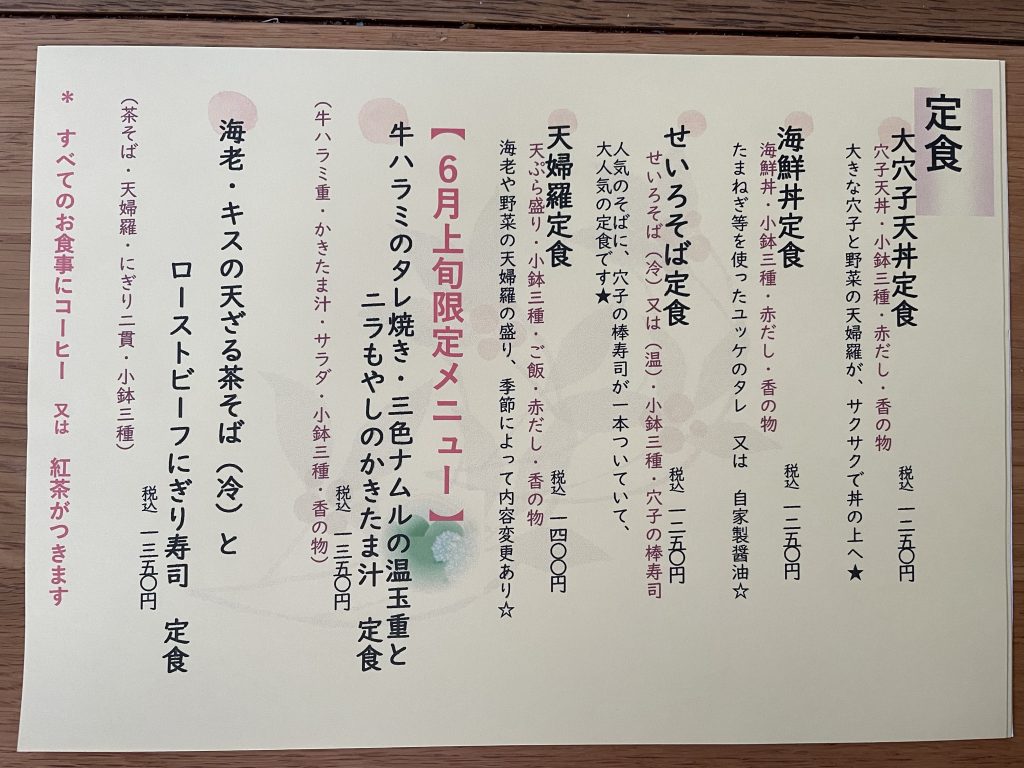 定食
大穴子天丼定食
穴子天丼・小鉢三種・赤だし・香の物
税込 一二五〇円
大きな穴子と野菜の天婦羅が、サクサクで丼の上へ★
海鮮丼定食
海鮮丼・小鉢三種・赤だし・香の物
税込 一二五〇円
たまねぎ等を使ったユッケのタレ 又は 自家製醤油☆
せいろそば定食
せいろそば（冷）又は（温）・小鉢三種・穴子の棒寿司
税込 一二五〇円
人気のそばに、穴子の棒寿司が一本ついていて、
大人気の定食です★
天婦羅定食
天ぷら盛り・小鉢三種・ご飯・赤だし・香の物
税込 一四〇〇円
海老や野菜の天婦羅の盛り、季節によって内容変更あり☆
【６月上旬限定メニュー】
牛ハラミのタレ焼き・三色ナムルの温玉重と
ニラもやしのかきたま汁 定食
税込 一三五〇円
（牛ハラミ重・かきたま汁・サラダ・小鉢三種・香の物）
海老・キスの天ざる茶そば（冷）と
ローストビーフにぎり寿司 定食
税込 一三五〇円
（茶そば・天婦羅・にぎり二貫・小鉢三種）
＊ すべてのお食事にコーヒー 又は 紅茶がつきます